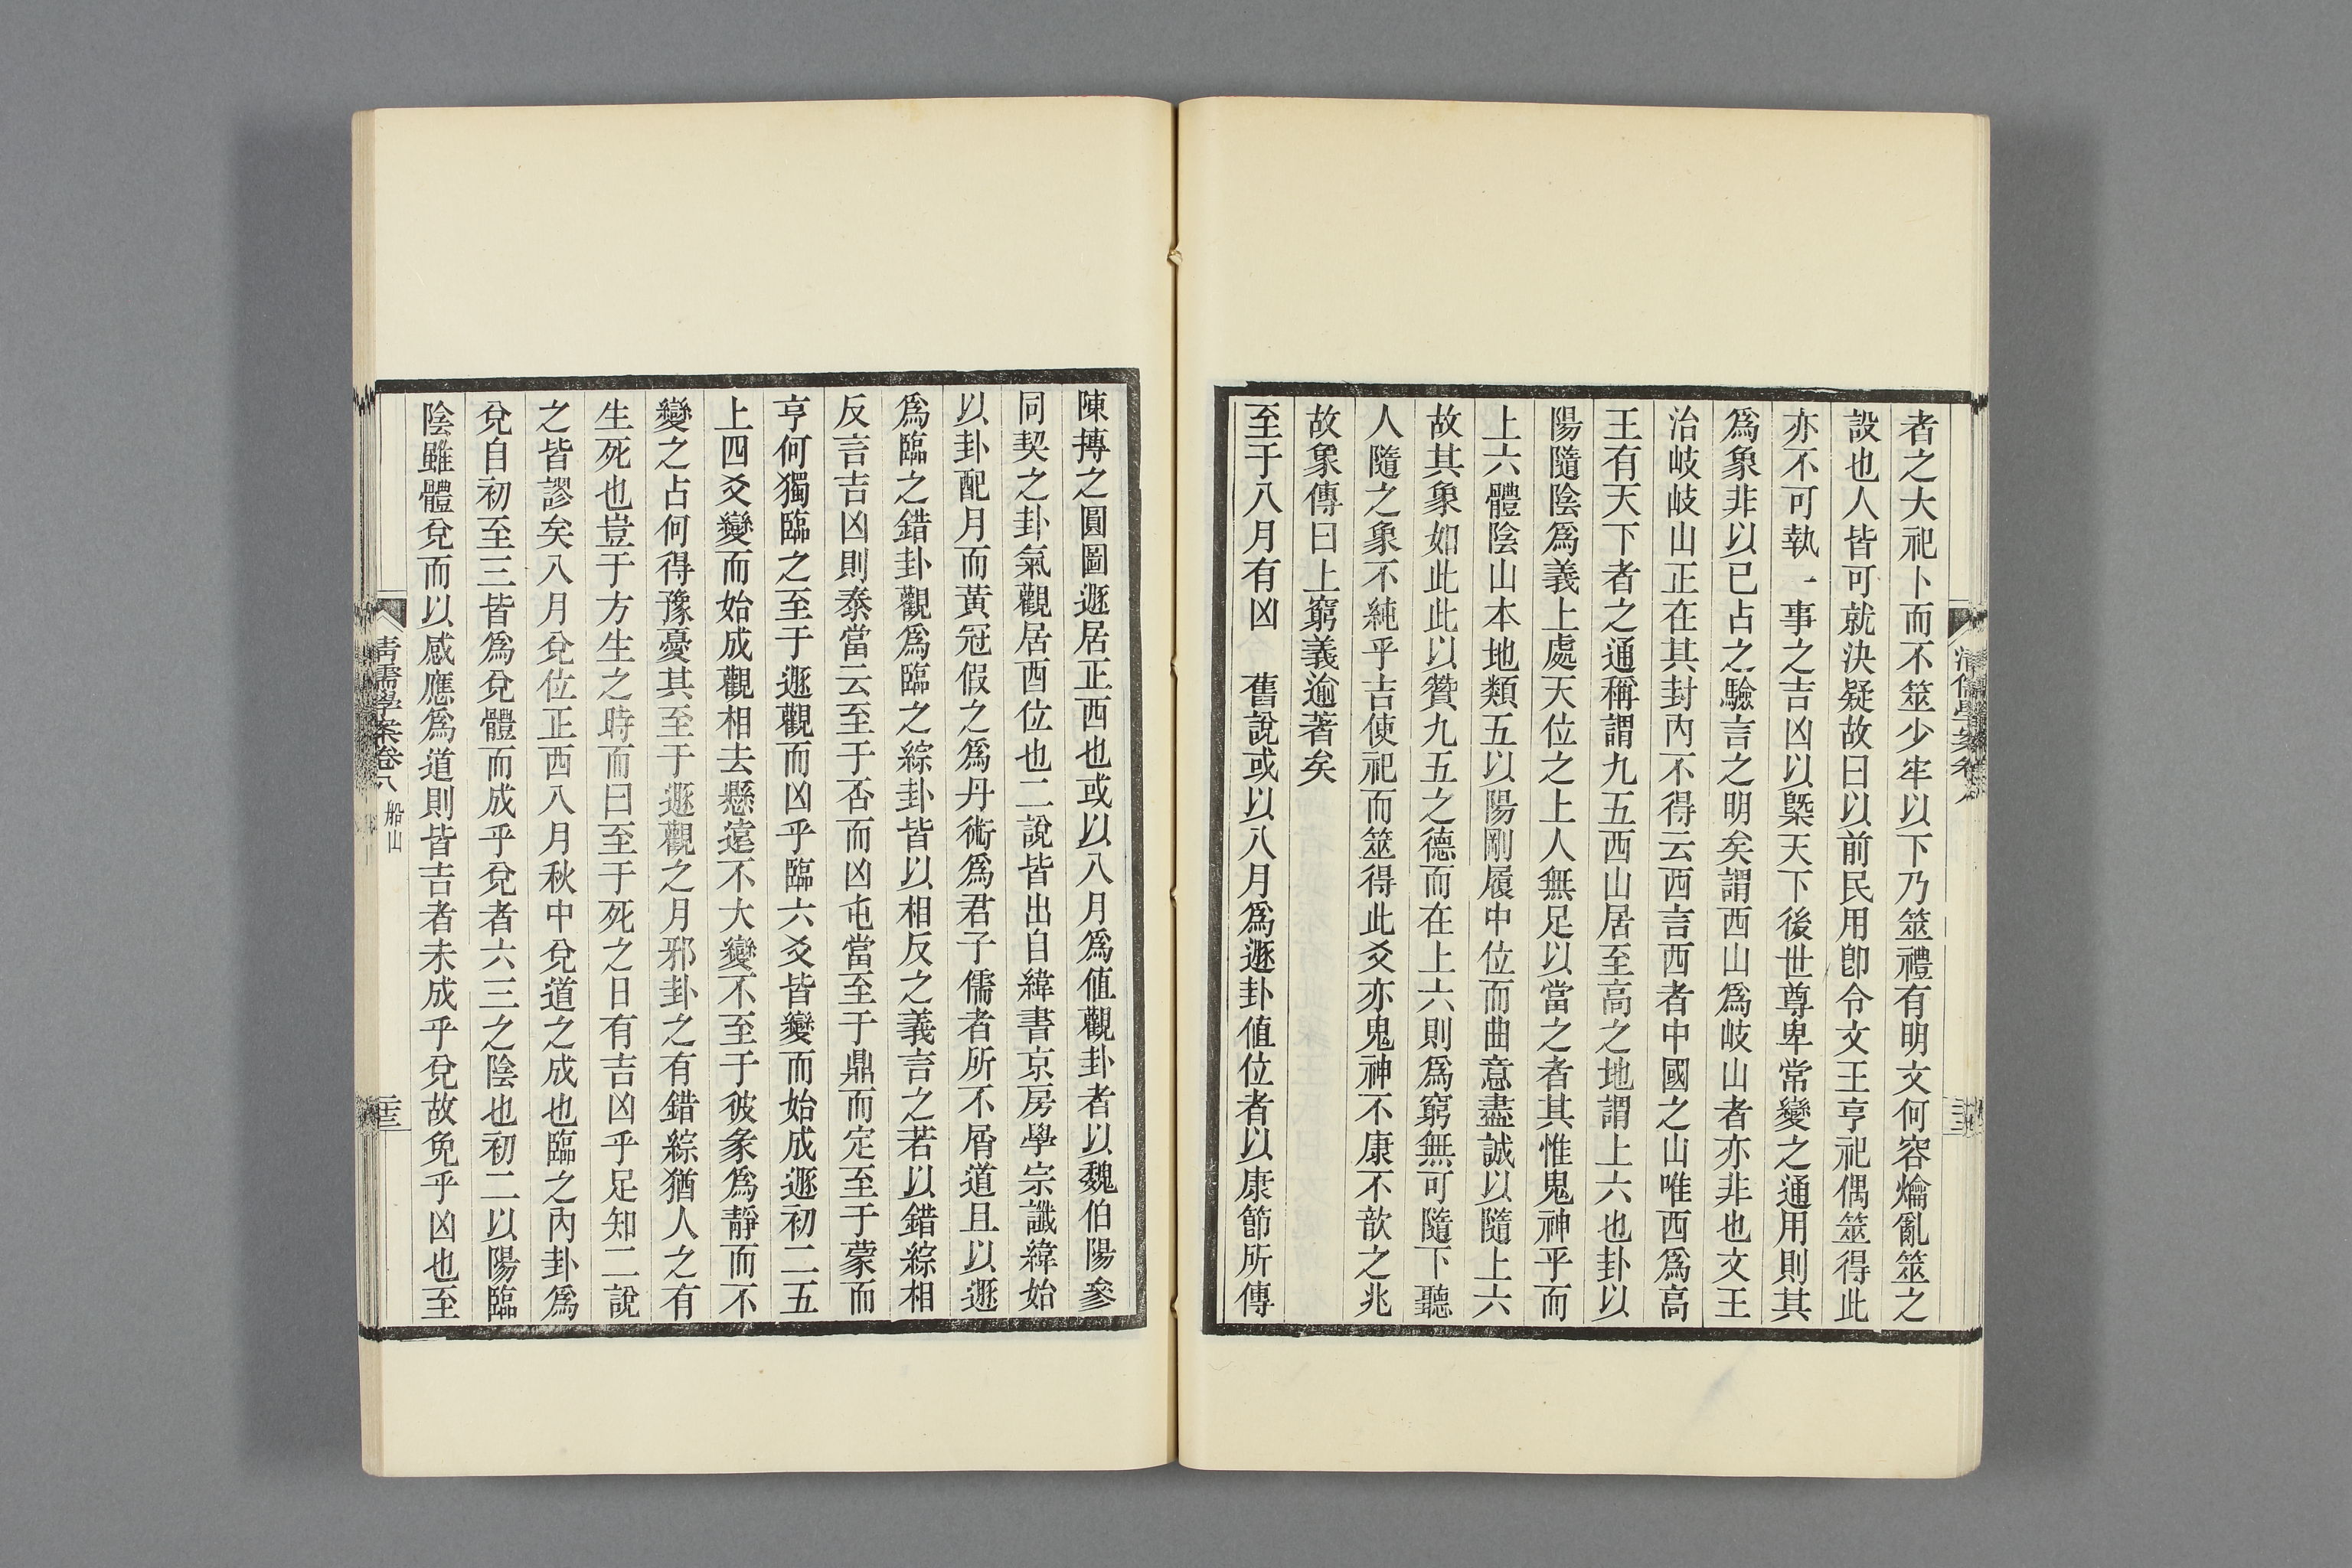 者之大祀卜而不筮少牢以下乃筮禮有明文何容爚亂筮之
設也人皆可就決疑故曰以前民用卽令文王亨祀偶筮得此
亦不可執一事之吉凶以槩天下後世尊卑常變之通用則其
爲象非以已占之驗言之明矣謂西山爲岐山者亦非也文王
治岐岐山正在其封內不得云西言西者中國之山唯西爲高
王有天下者之通稱謂九五西山居至高之地謂上六也卦以
陽隨陰爲義上處天位之上人無足以當之者其惟鬼神乎而
上六體陰山本地類五以陽剛履中位而曲意盡誠以隨上六
故其象如此此以贊九五之德而在上六則爲窮無可隨下聽
人隨之象不純乎吉使祀而筮得此爻亦鬼神不康不歆之兆
故象傳曰上窮義逾著矣
至于八月有凶　舊說或以八月爲遯卦值位者以康節所傳
陳摶之圓圖遯居正西也或以八月爲値觀卦者以魏伯陽參
同契之卦氣觀居酉位也二說皆出自緯書京房學宗讖緯始
以卦配月而黃冠假之爲丹術爲君子儒者所不屑道且以遯
爲臨之錯卦觀爲臨之綜卦皆以相反之義言之若以錯綜相
反言吉凶則泰當云至于否而凶屯當至于鼎而定至于蒙而
亨何獨臨之至于遯觀而凶乎臨六爻皆變而始成遯初二五
上四爻變而始成觀相去懸遠不大變不至于彼象爲靜而不
變之占何得豫憂其至于遯觀之月邪卦之有錯綜猶人之有
生死也豈于方生之時而曰至于死之日有吉凶乎足知二說
之皆謬矣八月兌位正西八月秋中兌道之成也臨之內卦爲
兌自初至三皆爲兌體而成乎兌者六三之陰也初二以陽臨
陰雖體兌而以感應爲道則皆吉者未成乎兌故免乎凶也至
清儒學案卷八 船山